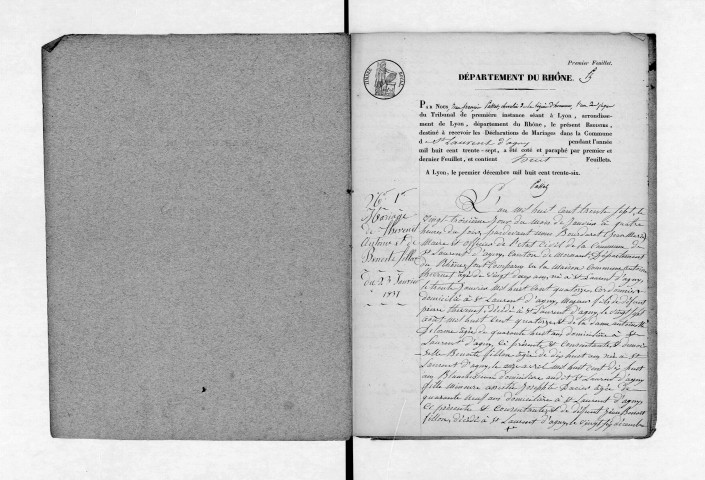 Premier Feuillet.
DÉPARTEMENT DU RHÔNE.
PAR NOUS, Jean françois
du Tribunal de première instance séant à Lyon, arrondisse-
ment de Lyon, département du Rhône, le présent REGISTRE,
destiné à recevoir les Déclarations de Mariages dans la Commune
d e St Laurent d'agny pendant l'année
mil huit cent trente-sept, a été coté et paraphé par premier et
dernier Feuillet, et contient huit Feuillets.
A Lyon, le premier décembre mil huit cent trente-six.
No 1er
Mariage
de
et de
Benoite fillon
Du 23 Janvier
L'an mil huit cent trente sept, le
vingt troisième jour du mois de Janvier à quatre
heures du soir, pardevant nous Bourdaret Jean Marie
Maire et officier de l'état civil de la Commune de
St Laurent d'agny, canton de Mornant Département
du Rhône, sont comparus en la maison commune
agé de vingt deux ans, né à St Laurent d'agny,
le trente Janvier mil huit cent quatorze, Cordonnier
domicilié à St Laurent d'agny, majeur fils de défunt
pierre décédé à St Laurent d'agny, le vingt sept
août mil huit cent quatorze, et de la dame antoinette
agée de quarante huit ans domiciliée à St
Laurent d'agny, ici présente et Consentante et demoi-
selle Benoite fillon agée de dix huit ans née à St
Laurent d'agny, le avril mil huit cent dix huit
domiciliée audit St Laurent d'agny
fille mineure Joseph agée de
quarante neuf ans domiciliée à St Laurent d'agny,
Ici présente et Consentante, et de défunt Jean Benoit
fillon, décédé à St Laurent d'agny, le vingt six décembre